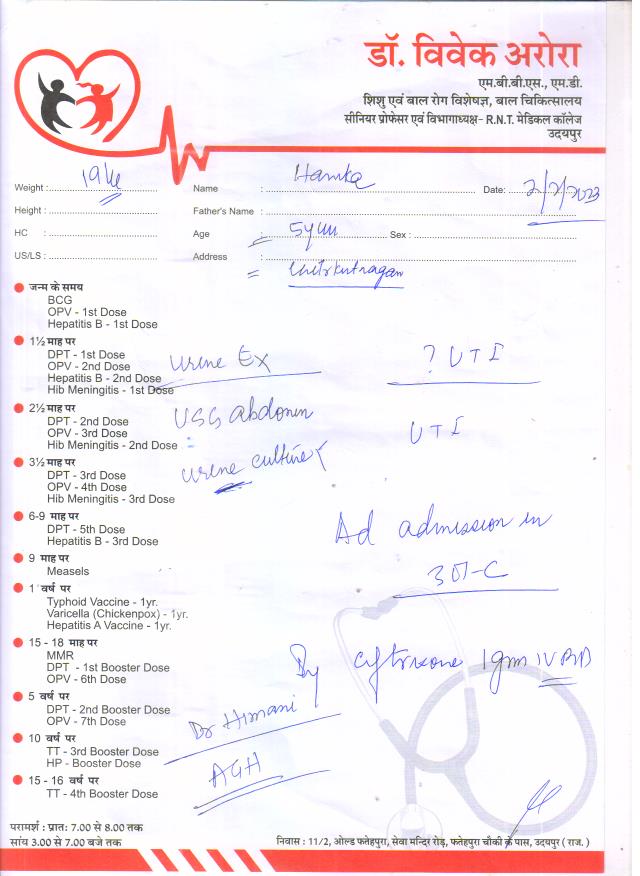 डॉ. विवेक अरोरा
एम.बी.बी.एस., एम.डी.
शिशु एवं बाल रोग विशेषज्ञ, बाल चिकित्सालय
सीनियर प्रोफेसर एवं विभागाध्यक्ष- R.N.T. मेडिकल कॉलेज
उदयपुर
Weight : Name : Date: 2/2/2023
Height : Father's Name :
HC : Age : 5 Sex :
US/LS : Address :
जन्म के समय
BCG
OPV - 1st Dose
Hepatitis B - 1st Dose
1½ माह पर
DPT - 1st Dose
OPV - 2nd Dose
Hepatitis B - 2nd Dose
Hib Meningitis - 1st Dose
Urine Ex ? UTI
2½ माह पर
DPT - 2nd Dose
OPV - 3rd Dose
Hib Meningitis - 2nd Dose
USG abdomen UTI
3½ माह पर
DPT - 3rd Dose
OPV - 4th Dose
Hib Meningitis - 3rd Dose
urine culture
6-9 माह पर
DPT - 5th Dose
Hepatitis B - 3rd Dose
Ad admission in
9 माह पर
Measels
1 वर्ष पर
Typhoid Vaccine - 1yr.
Varicella (Chickenpox) - 1yr.
Hepatitis A Vaccine - 1yr.
15 - 18 माह पर
MMR
DPT - 1st Booster Dose
OPV - 6th Dose
1gm IV
5 वर्ष पर
DPT - 2nd Booster Dose
OPV - 7th Dose
Dr Himani
10 वर्ष पर
TT - 3rd Booster Dose
HP - Booster Dose
AGH
15 - 16 वर्ष पर
TT - 4th Booster Dose
परामर्श : प्रातः 7.00 से 8.00 तक
सांय 3.00 से 7.00 बजे तक
निवास : 11/2, ओल्ड फतेहपुरा, सेवा मन्दिर रोड़, फतेहपुरा चौकी के पास, उदयपुर ( राज. )